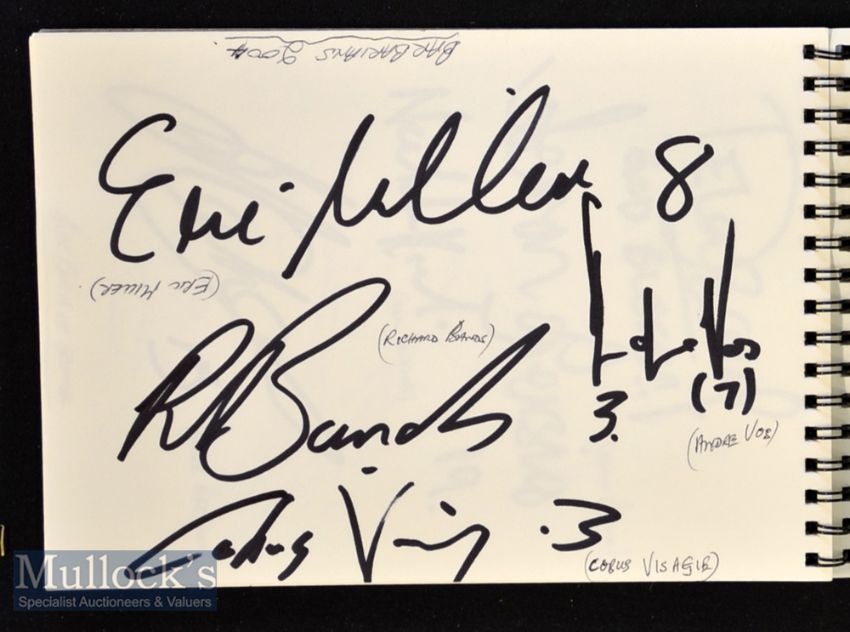 BARBARIANS 2004.
Eric Miller 8
(ERIC MILLER)
(RICHARD BANDS)
R Bands
3.
(7)
(ANDRE VOS)
Cobus Visagie .3
(COBUS VISAGIE)
Mullock's
Specialist Auctioneers & Valuers